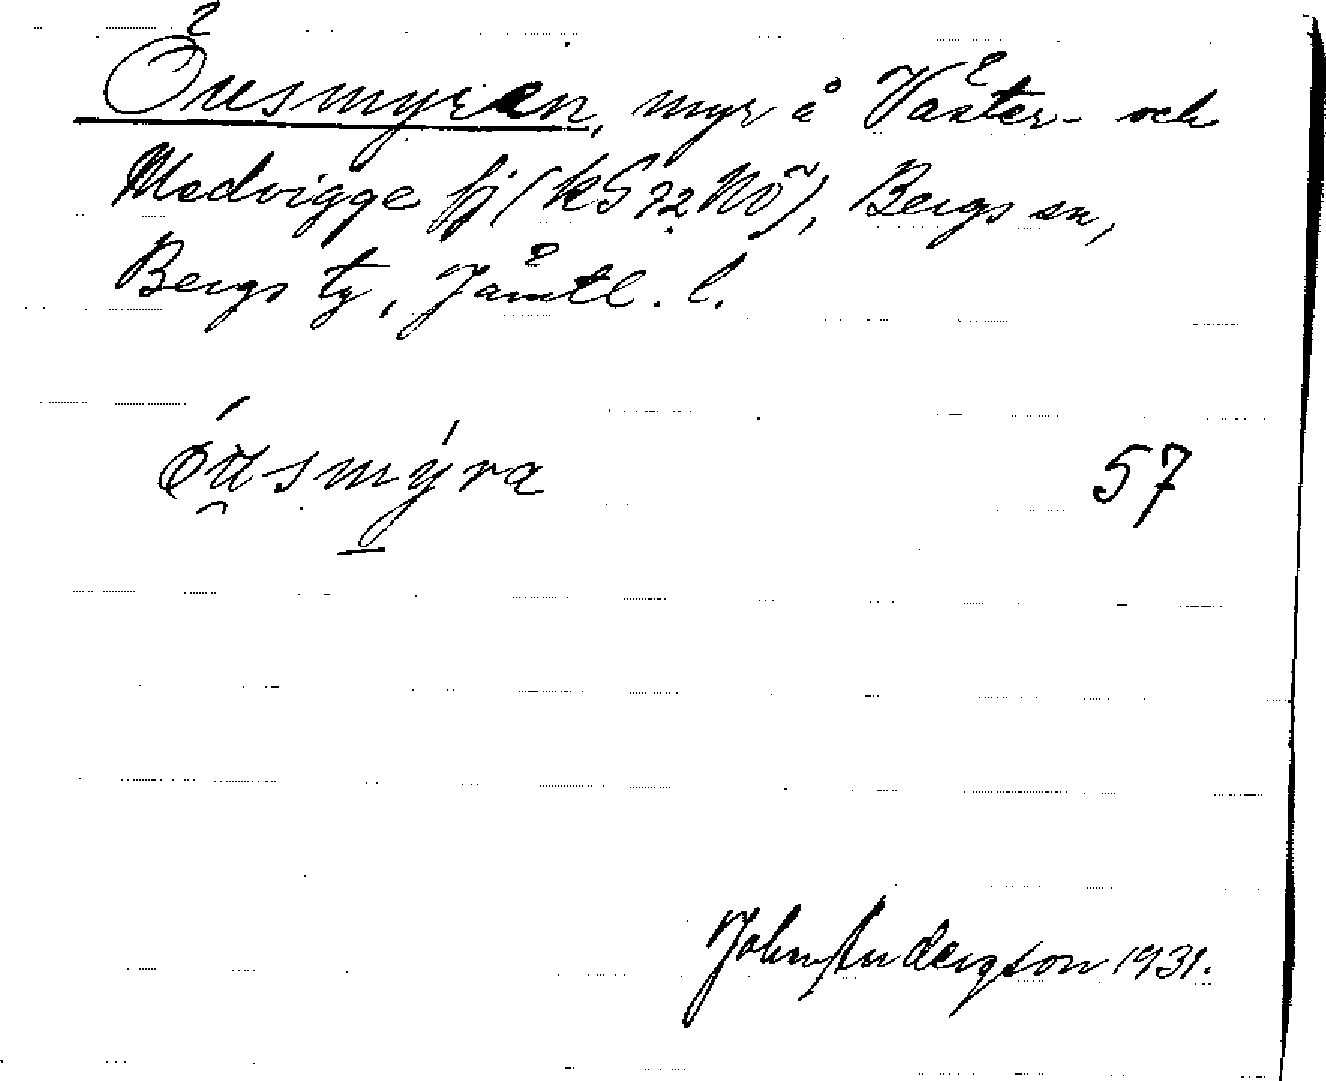 Öusmyran, myr å Väster- och
Medvigge fj (kS 72 NÖ), Bergs sn,
Bergs tg, Jämtl. l.
57
John Andersson 1931.